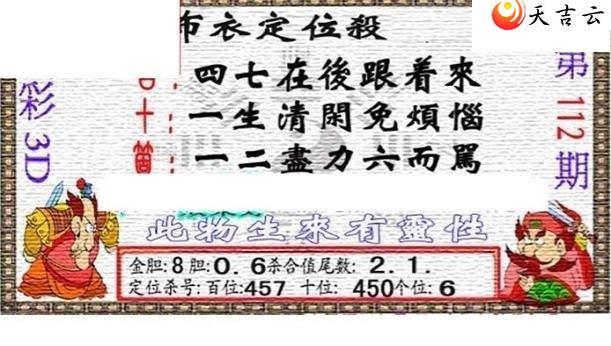 天吉云
布衣定位殺
四七在後跟着來
一生清閑免煩惱
一二盡力六而罵
彩3D
第112期
此物生來有靈性
金胆:8胆:0.6杀合值尾数:2.1.
定位杀号:百位:457 十位:450个位:6